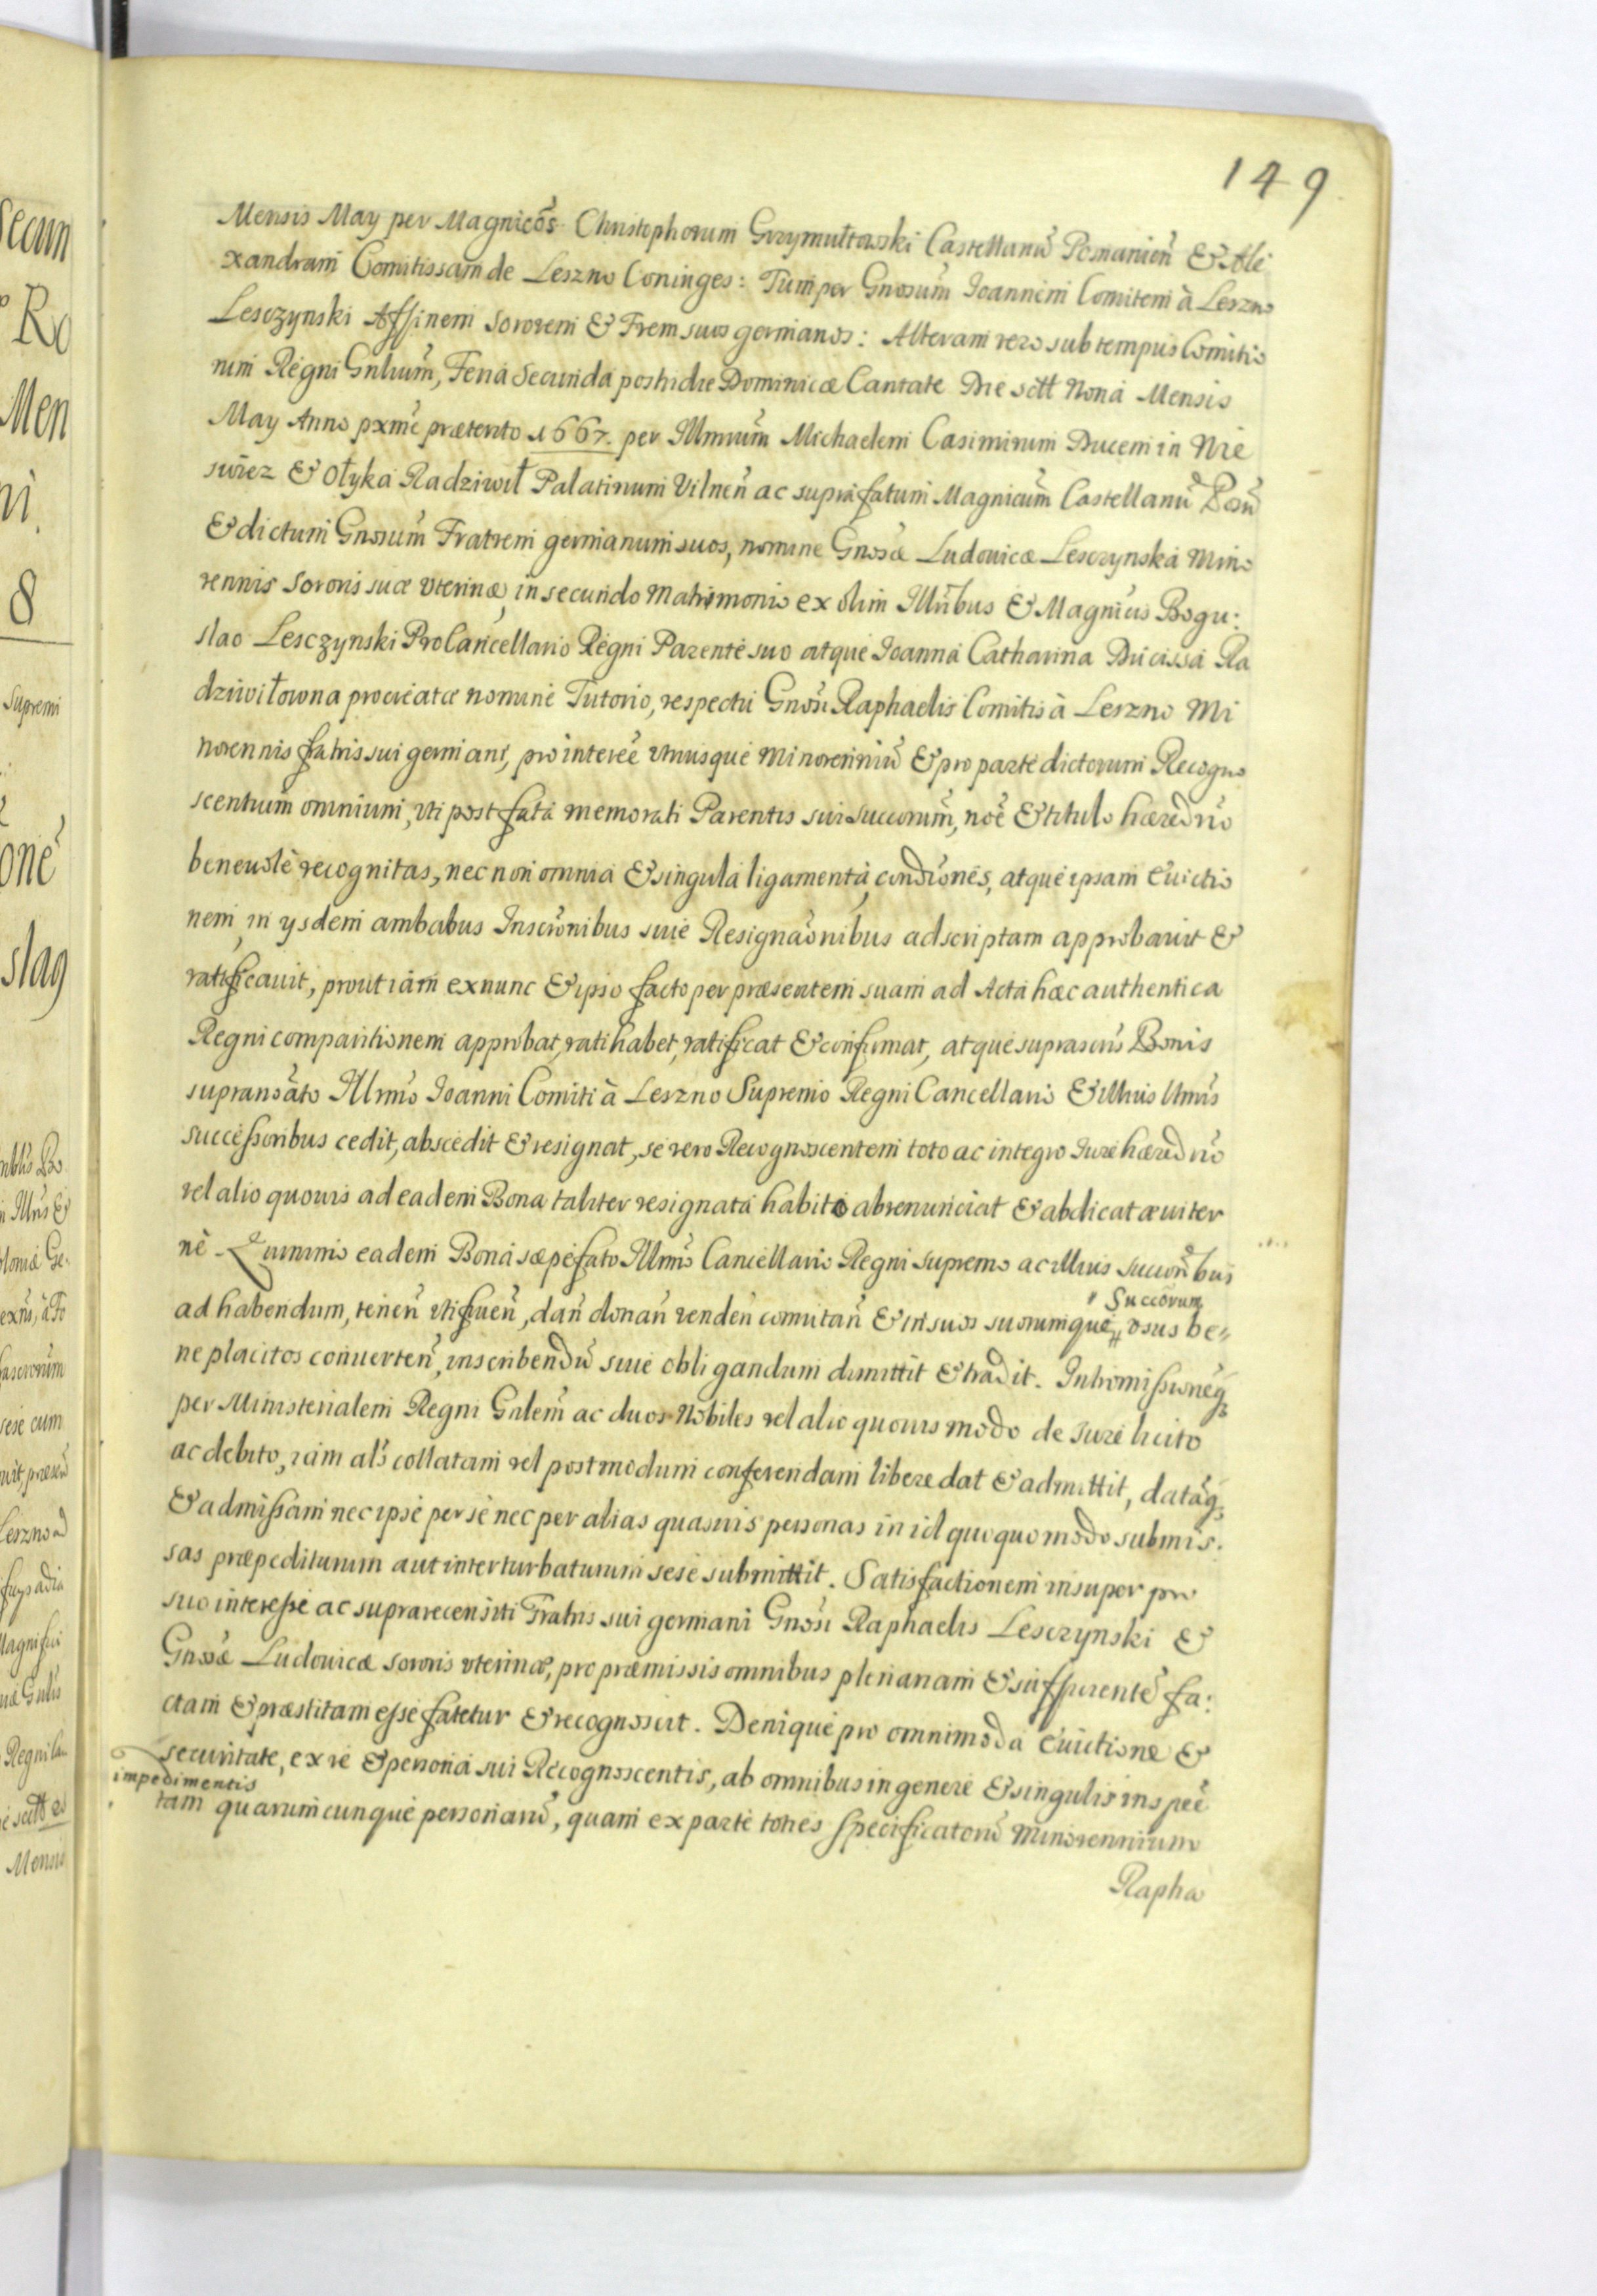 149
Mensis May per Magnicos Christophorum Grzymułtowski Castellanū Posnanien̄ & Ale
xandram Comitissam de Leszno Coniuges: Tum per Gnosum Ioannem Comitem à Leszno
Lesczynski Affinem Sororem & Frem suos germanos: Alteram vero sub tempus Comitio
rum Regni Gnlium, Feria Secunda postridie Dominicæ Cantate Die sctt Nona Mensis
May Anno pxme præterito 1667. per Illmum Michaelem Casimirum Ducem in Nie
swiez & Ołyka Radziwił Palatinum Vilnen̄ ac suprafatum Magnicum Castellanū Posn̄
& dictum Gnosum Fratrem germanum suos, nomine Gnosæ Ludouicæ Lesczynska Mino
rennis Sororis suæ vterinæ, in secundo Matrimonio ex olim Illribus & Magnicis Bogu:
slao Lesczynski ProCancellario Regni Parente suo atque Ioanna Catharina Ducissa Ra
dziwiłowna procreatæ nomine Tutorio, respectu Gnosi Raphaelis Comitis à Leszno Mi
norennis fratris sui germani, pro interee vtriusque Minorenniū & pro parte dictorum Recogno
scentium omnium, vti post fata memorati Parentis sui succorum, noe & titulo hæredrio
beneuole recognitas, nec non omnia & singula ligamenta, condiones, atque ipsam Euictio
nem in ysdem ambabus Inscrionibus siue Resignaonibus adscriptam approbauit &
ratificauit, prout iam ex nunc & ipso facto per præsentem suam ad Acta hæc authentica
Regni comparitionem approbat, ratihabet, ratificat & confirmat, atque suprascris Bonis
supranoāto Illrmo Ioanni Comiti à Leszno Supremo Regni Cancellario & illius Ltmis
successoribus cedit, abscedit & resignat, se vero Recognoscentem toto ac integro Iure hæredrio
vel alio quouis ad eadem Bona taliter resignata habito abrenunciat & abdicat æuiter
ne. Quinimo eadem Bona sæpefato Illmo Cancellario Regni supremo ac illius succoribus
ad habendum, tenen̄ vtifruen̄, dan̄ donan̄ venden̄ comutan̄ & in suos suorumque // vsus be//
// Succorum
ne placitos conuerten̄, inscribendū siue obligandum dimittit & tradit. Intromissioneq
per Ministerialem Regni Gnlem ac duos Nobiles vel alio quouis modo de Iure licito
ac debito, iam als collatam vel postmodum conferendam libere dat & admittit, datāq
& admissam nec ipse per se nec per alias quasuis personas in id quoquo modo submis:
sas præpediturum aut interturbaturum sese submittit. Satisfactionem insuper pro
suo interesse ac suprarecensiti Fratris sui germani Gnosi Raphaelis Lesczynski &
Gnosæ Ludouicæ sororis vterinæ, pro præmissis omnibus plenariam & sufficientē fa:
ctam & præstitam esse fatetur & recognoscit. Denique pro omnimoda Euictione &
securitate, ex re & persona sui Recognoscentis, ab omnibus in genere & singulis in spee
impedimentis
tam quarumcunque personarū, quam ex parte toties specificatorū Minorennium
Rapha